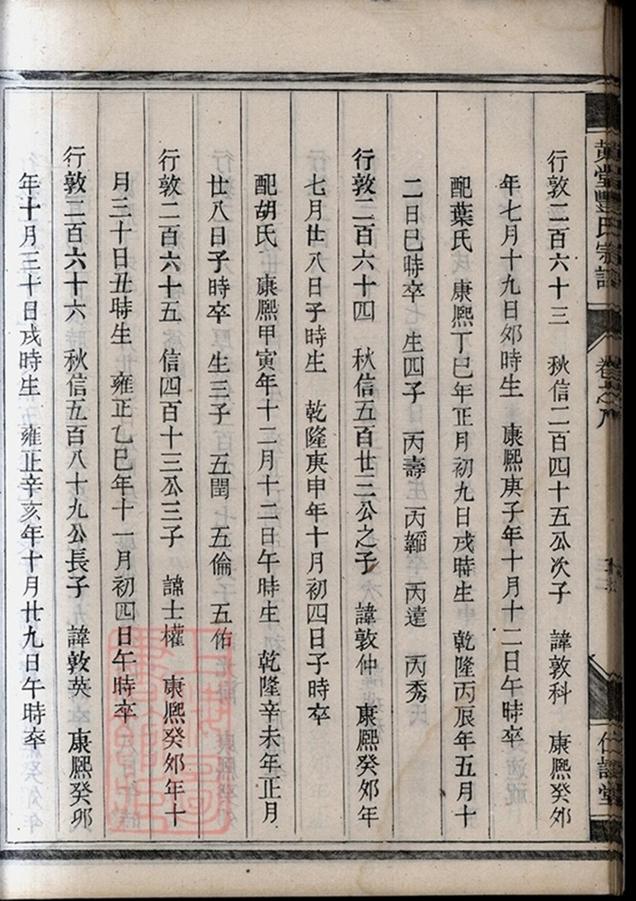 黃堂豐氏宗譜 卷之八 仁讓堂
行敦二百六十三 秋信二百四十五公次子 諱敦科 康熙癸夘
年七月十九日夘時生 康熙庚子年十月十二日午時卒
配葉氏 康熙丁巳年正月初九日戌時生 乾隆丙辰年五月十
二日巳時卒 生四子 丙壽 丙韜 丙達 丙秀
行敦二百六十四 秋信五百廿三公之子 諱敦仲 康熙癸夘年
七月廿八日子時生 乾隆庚申年十月初四日子時卒
配胡氏 康熙甲寅年十二月十二日午時生 乾隆辛未年正月
廿八日子時卒 生三子 五閏 五倫 五佑
行敦二百六十五 信四百十三公三子 諱士權 康熙癸夘年十
月三十日丑時生 雍正乙巳年十一月初四日午時卒
行敦二百六十六 秋信五百八十九公長子 諱敦英 康熙癸卯
年十月三十日戌時生 雍正辛亥年十月廿九日午時卒